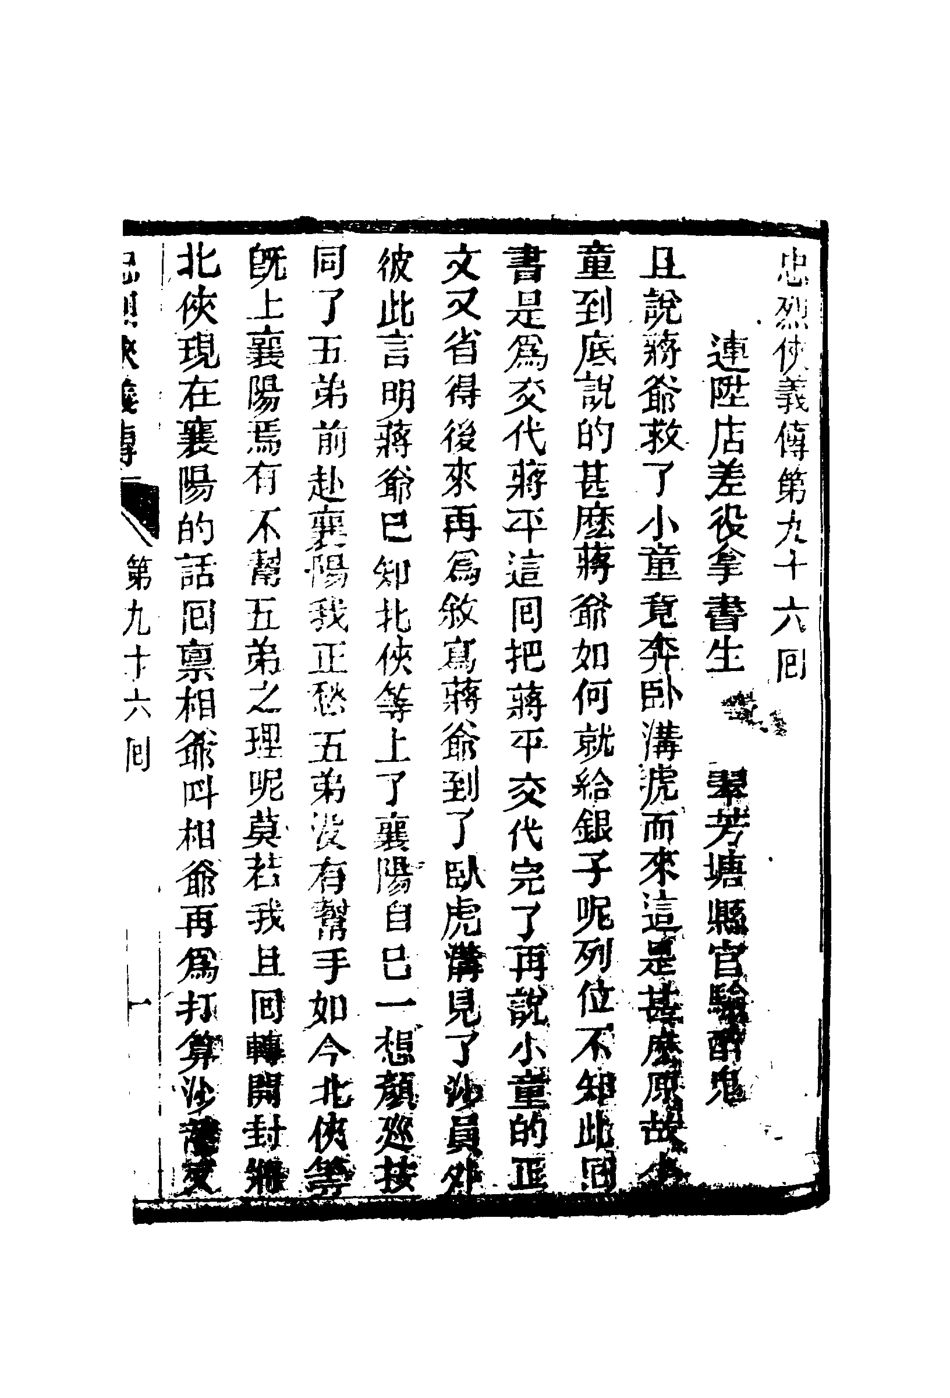 忠烈俠義傳第九十六囘
連陞店差役拿書生　翠芳塘縣官驗醉鬼
且說蔣爺救了小童竟奔臥溝虎而來這是甚麽原故小
童到底說的甚麽蔣爺如何就給銀子呢列位不知此囘
書是爲交代蔣平這囘把蔣平交代完了再說小童的正
文又省得後來再爲敘寫蔣爺到了臥虎溝見了沙員外
彼此言明蔣爺已知北俠等上了襄陽自已一想顏廵按
同了五弟前赴襄陽我正愁五弟沒有幫手如今北俠等
旣上襄陽焉有不幫五弟之理呢莫若我且回轉開封將
北俠現在襄陽的話囘禀相爺呌相爺再爲打算沙龍又
忠烈俠義傳
第九十六囘
一